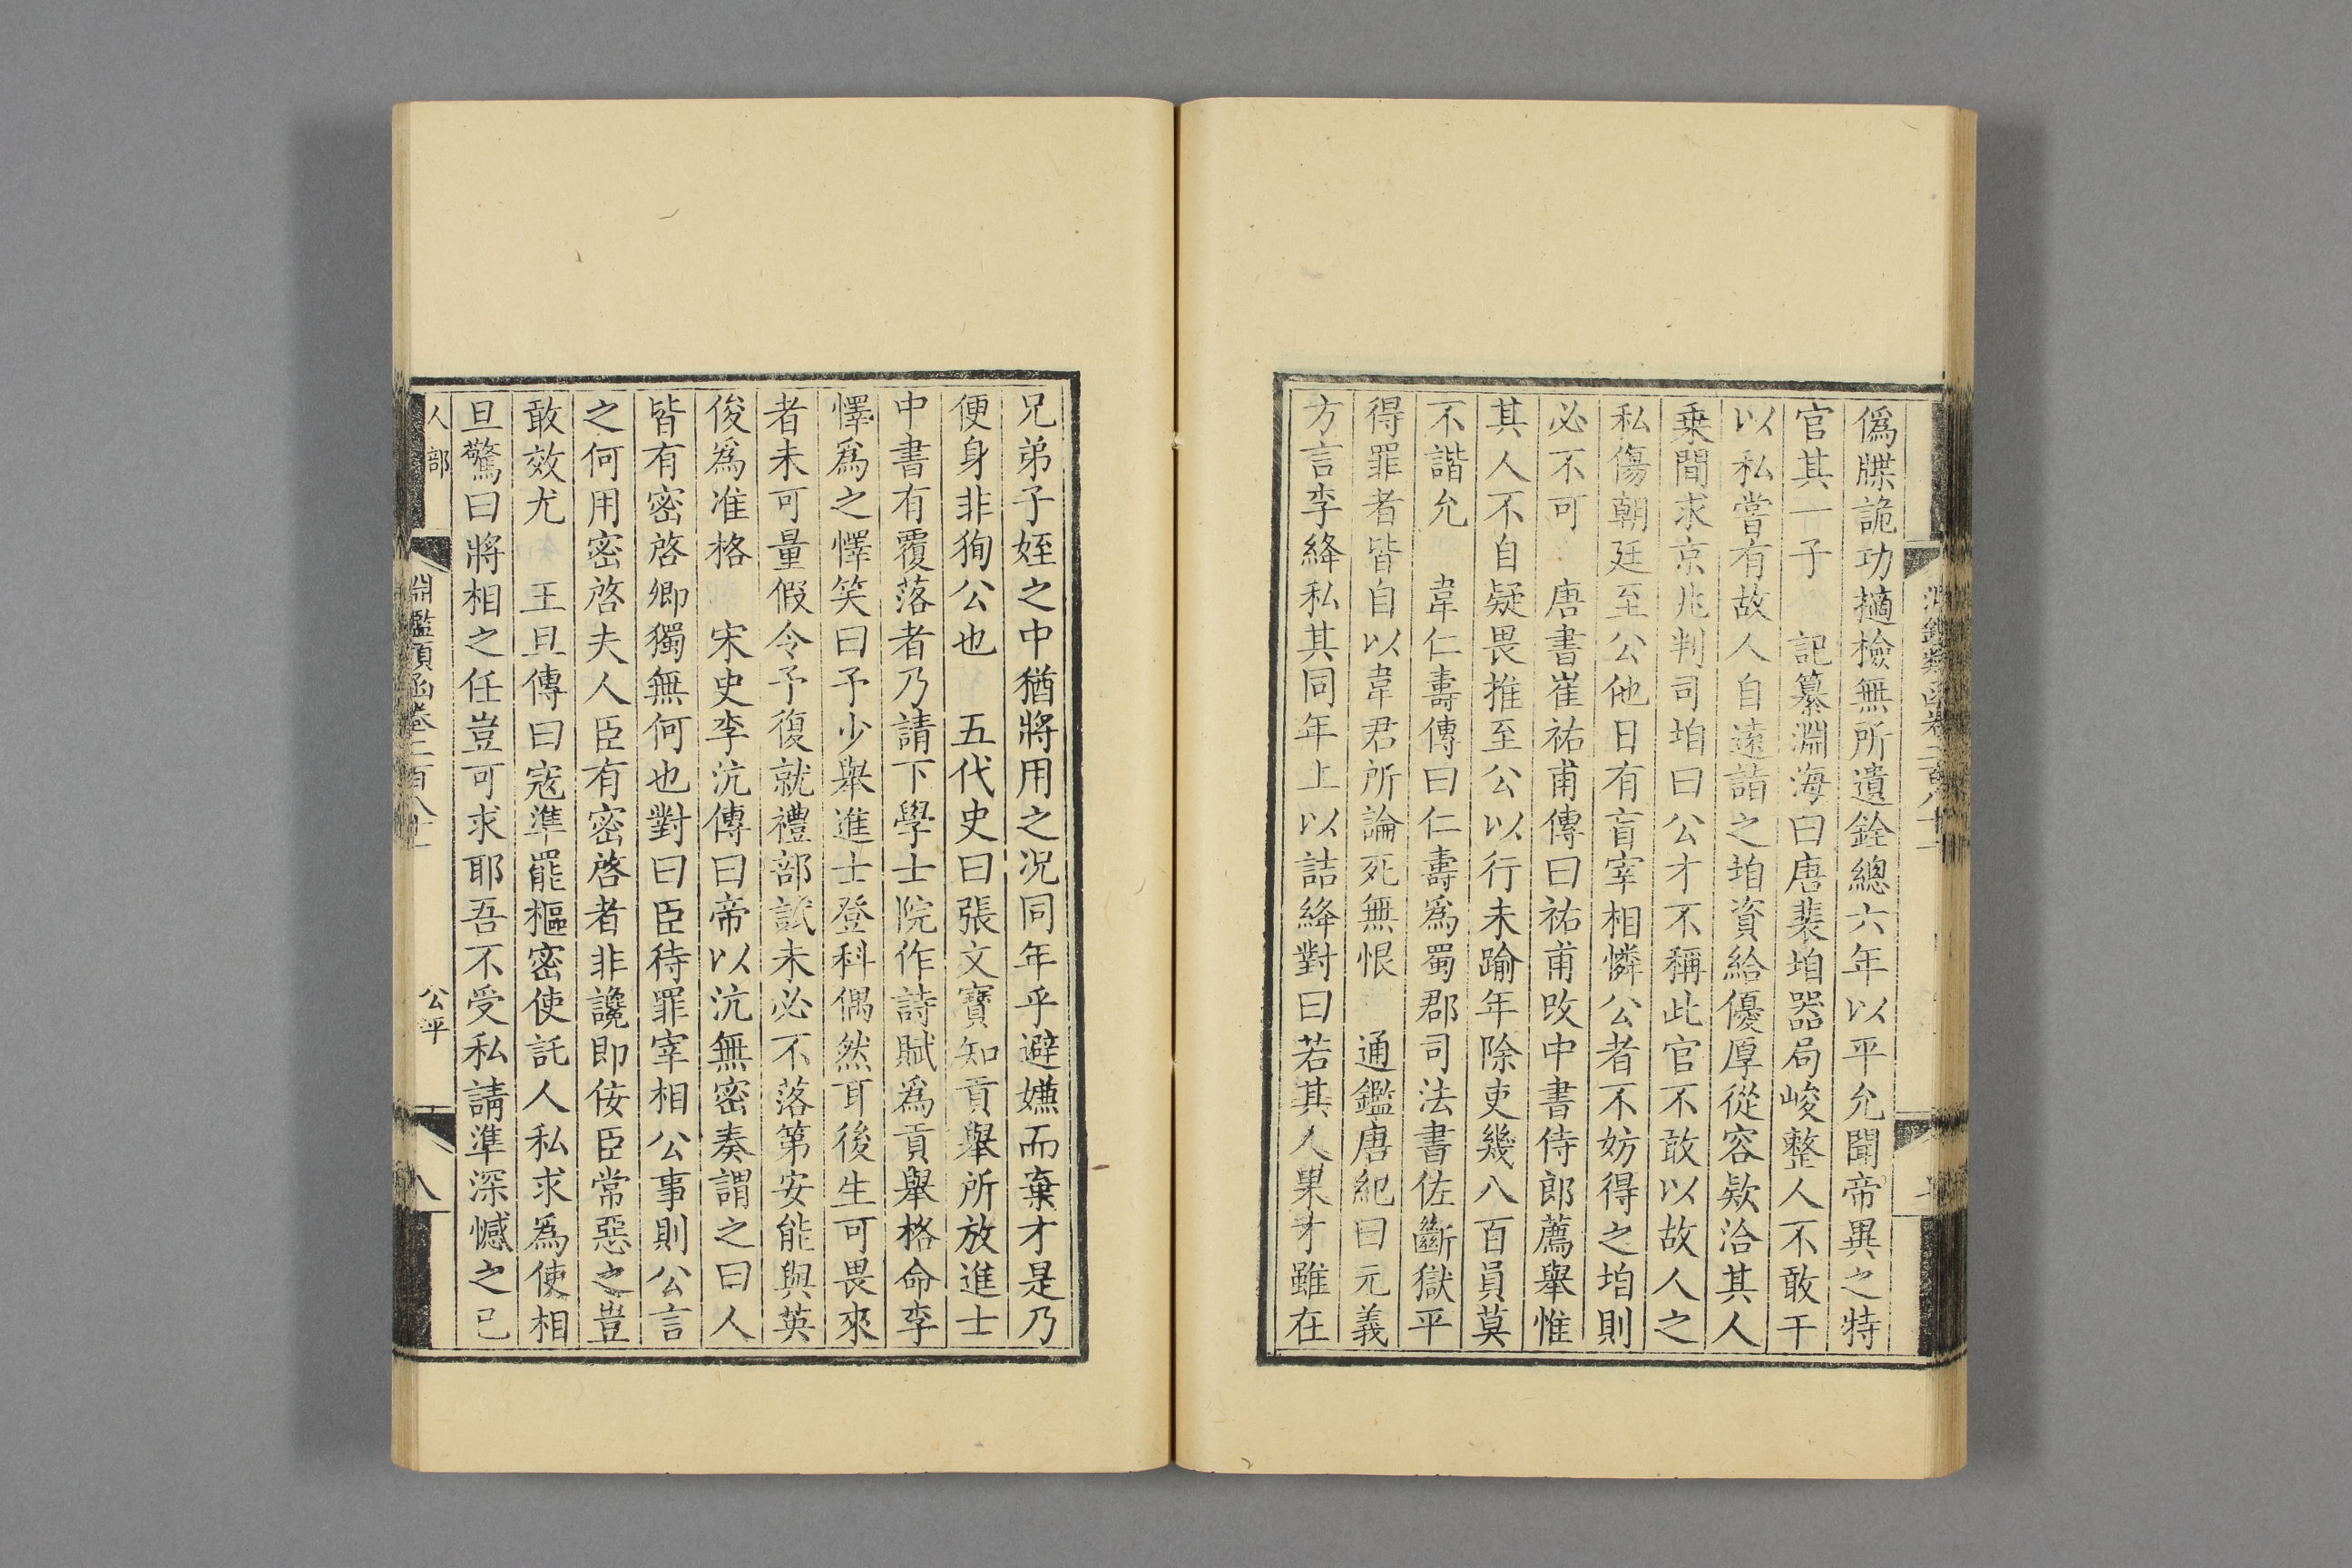 偽牒詭功擿檢無所遺銓總六年以平允聞帝異之特
官其一子　記纂淵海曰唐裴垍器局峻整人不敢干
以私嘗有故人自遠詣之垍資給優厚從容欵洽其人
乗間求京兆判司垍曰公才不稱此官不敢以故人之
私傷朝廷至公他日有盲宰相憐公者不妨得之垍則
必不可　唐書崔祐甫傳曰祐甫改中書侍郎薦舉惟
其人不自疑畏推至公以行未踰年除吏幾八百員莫
不諧允　韋仁壽傳曰仁壽爲蜀郡司法書佐斷獄平
得罪者皆自以韋君所論死無恨　通鑑唐紀曰元義
方言李絳私其同年上以詰絳對曰若其人果才雖在
兄弟子姪之中猶將用之况同年乎避嫌而棄才是乃
便身非狥公也　五代史曰張文寶知貢舉所放進士
中書有覆落者乃請下學士院作詩賦爲貢舉格命李
懌爲之懌笑曰予少舉進士登科偶然耳後生可畏來
者未可量假令予復就禮部試未必不落第安能與英
俊爲准格　宋史李沆傳曰帝以沆無密奏謂之曰人
皆有密啓卿獨無何也對曰臣待罪宰相公事則公言
之何用密啓夫人臣有密啓者非讒即佞臣常惡之豈
敢效尤　王旦傳曰寇準罷樞密使託人私求爲使相
旦驚曰將相之任豈可求耶吾不受私請準深憾之已
人部
淵鑑類函卷二百八十一
公平
八